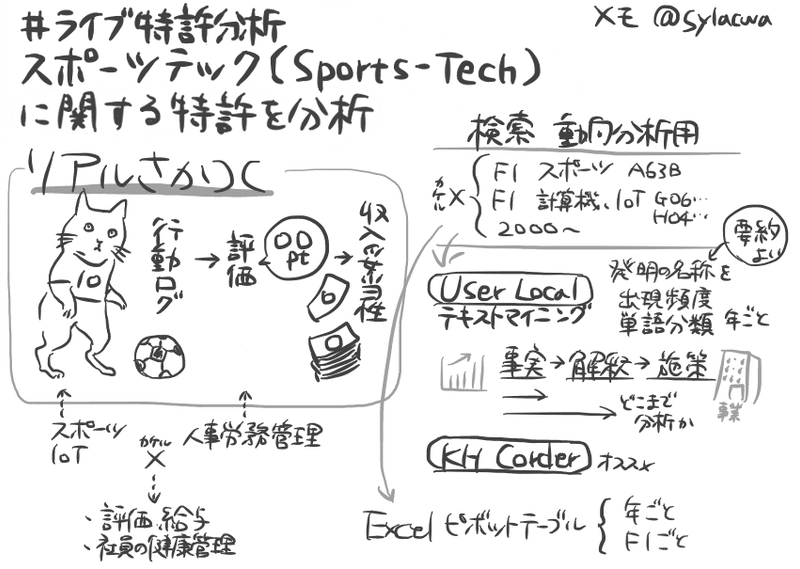 #ライブ特許分析
スポーツテック(Sports-Tech)
に関する特許を分析
メモ @sylacwa
リアルさかつく
10
行動ログ
→ 評価
00
pt
→ 収入
スポーツ
IoT
カケル
×
人事労務管理
・評価、給与
・社員の健康管理
検索 動向分析用
カケル
×
FI スポーツ A63B
FI 計算機、IoT G06…
H04…
2000~
要約
よい
User Local
テキストマイニング
発明の名称を
出現頻度
単語分類 年ごと
事実→解釈→施策
事業
どこまで
分析か
KH Corder オススメ
Excel ピボットテーブル
年ごと
FIごと